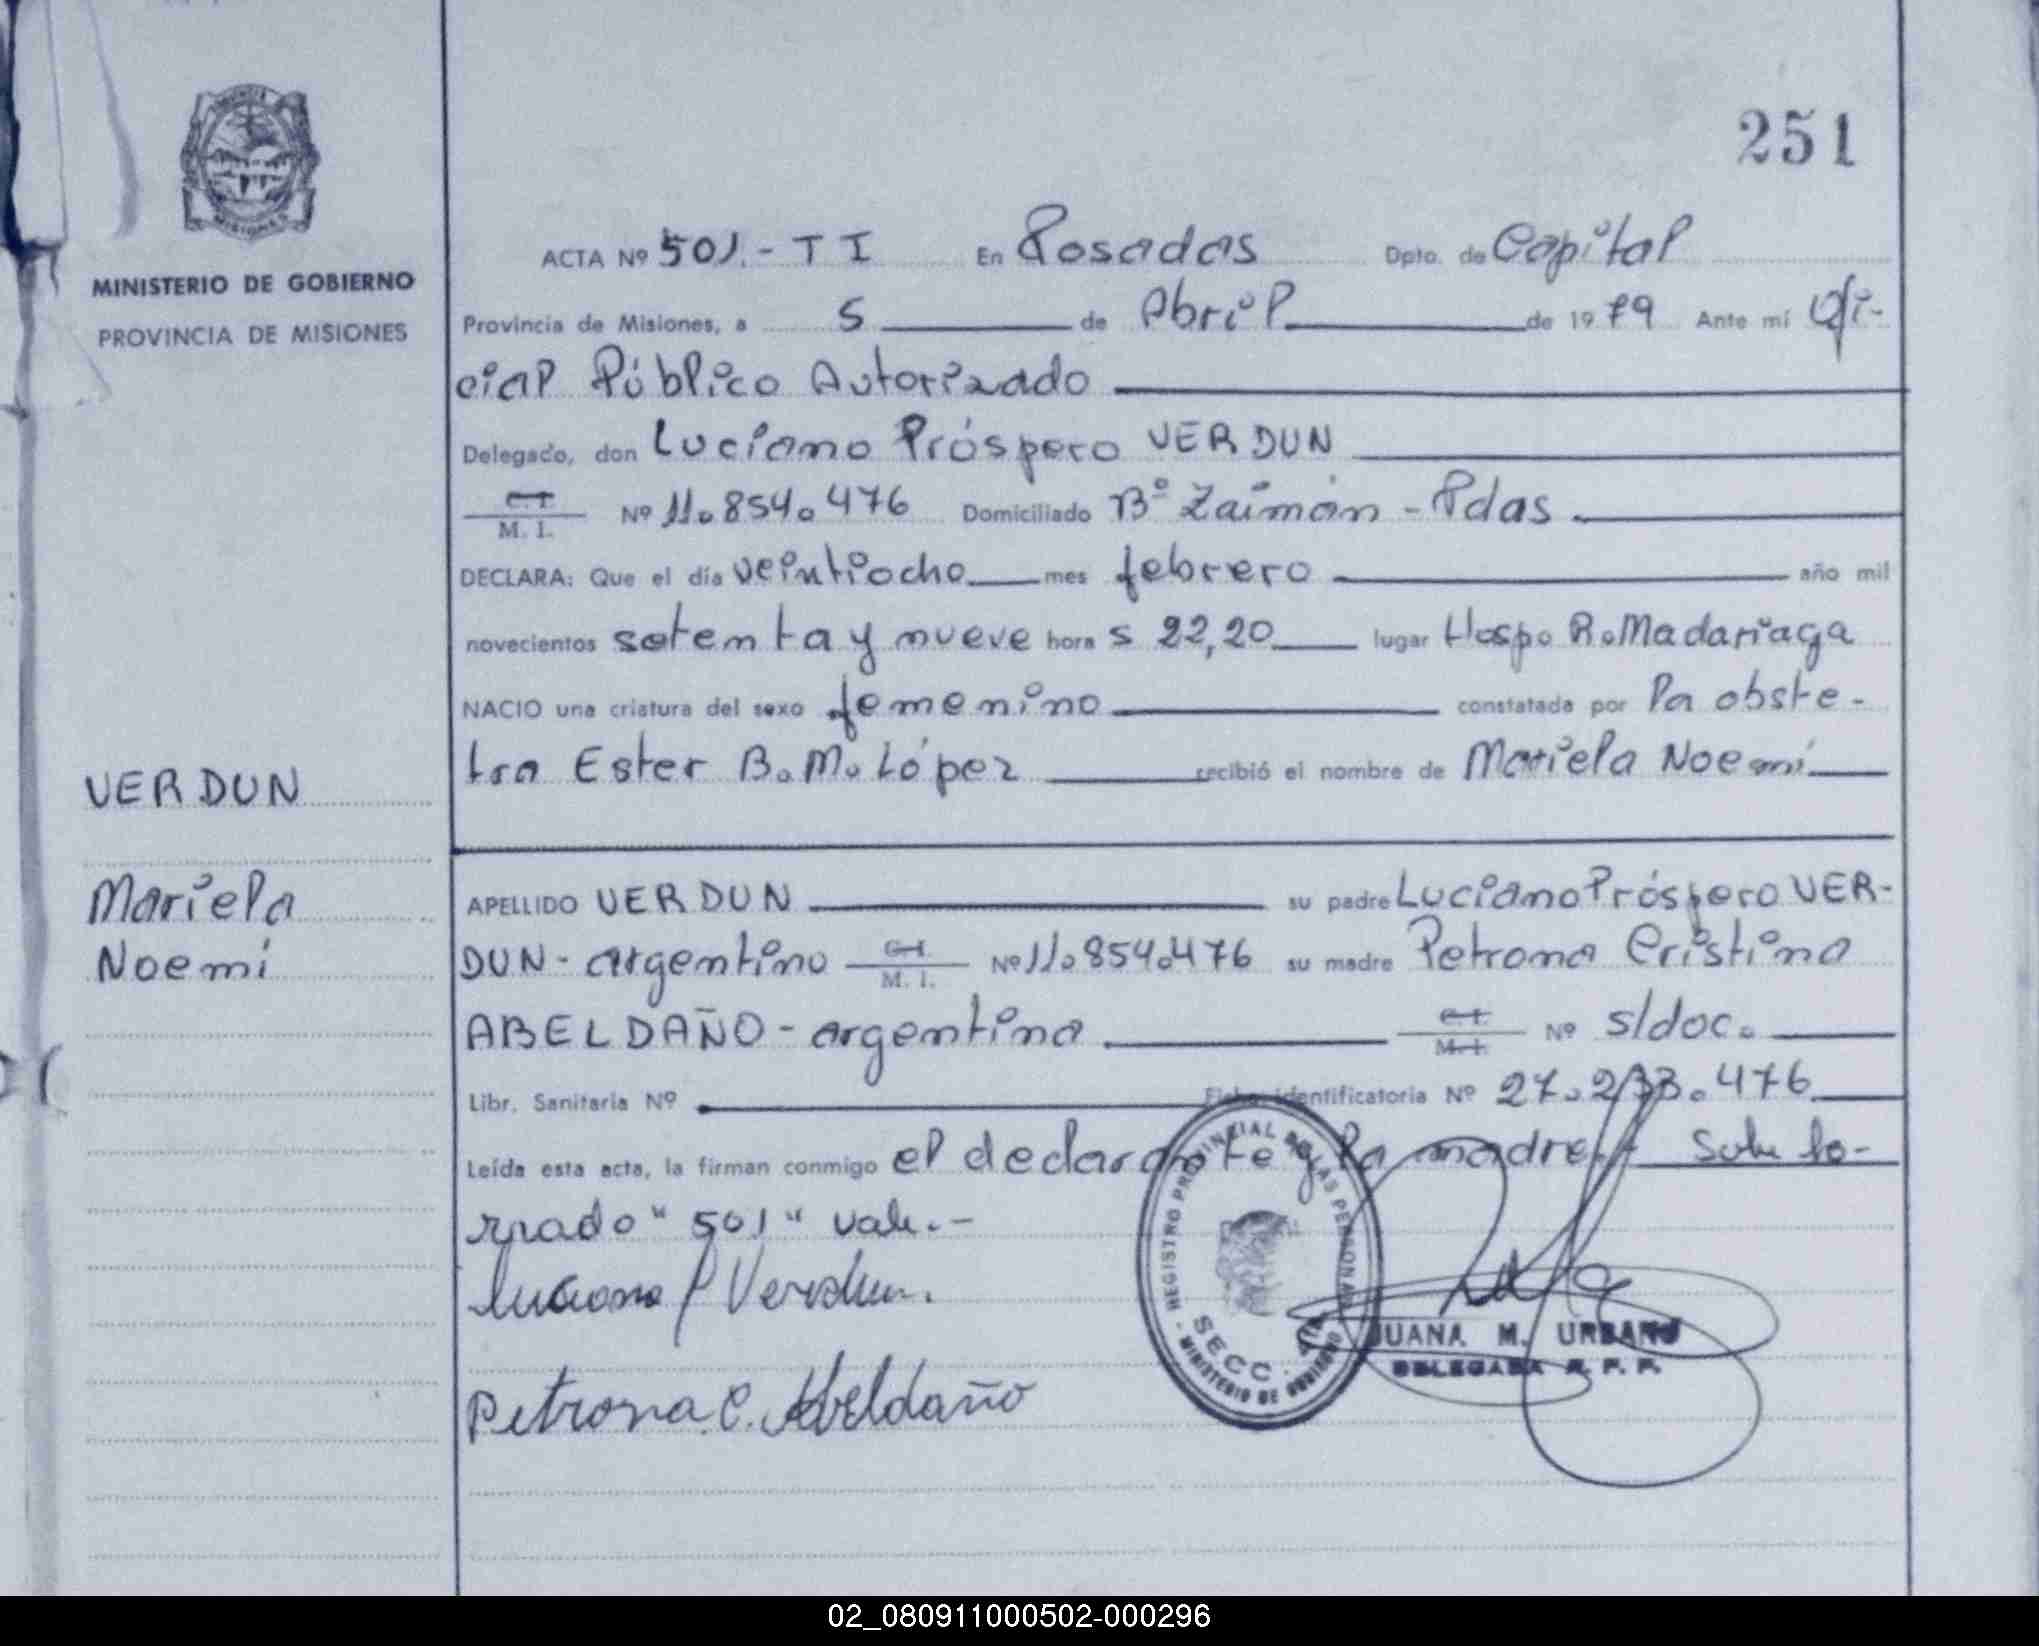 251
MINISTERIO DE GOBIERNO
PROVINCIA DE MISIONES
ACTA Nº 501.- T I En Posadas Dpto. de Capital
Provincia de Misiones, a 5 de Abril de 1979 Ante mí Ofi-
cial Público Autorizado
Delegado, don Luciano Próspero VERDUN
C. I.
M. I. Nº 11.854.476 Domiciliado Bº Zaimán - Pdas
DECLARA: Que el día veintiocho mes febrero año mil
novecientos setenta y nueve hora s 22,20 lugar Hosp. R. Madariaga
NACIO una criatura del sexo femenino constatada por la obste-
tra Ester B. M. López recibió el nombre de Mariela Noemí
VERDUN
Mariela
Noemí
APELLIDO VERDUN su padre Luciano Próspero VER-
DUN - argentino C. I. M. I. Nº 11.854.476 su madre Petrona Cristina
ABELDAÑO - argentina C. I. M. I. Nº s/doc.
Libr. Sanitaria Nº Ficha identificatoria Nº 27.233.476
Leída esta acta, la firman conmigo el declarante y la madre.- Sobre bo-
rrado "501" vale.-
Luciano P Verdun.
Petrona C. Abeldaño
REGISTRO PROVINCIAL DE LAS PERSONAS
SECC.
MINISTERIO DE GOBIERNO
JUANA M. URBANO
DELEGADA R. P. P.
02_080911000502-000296